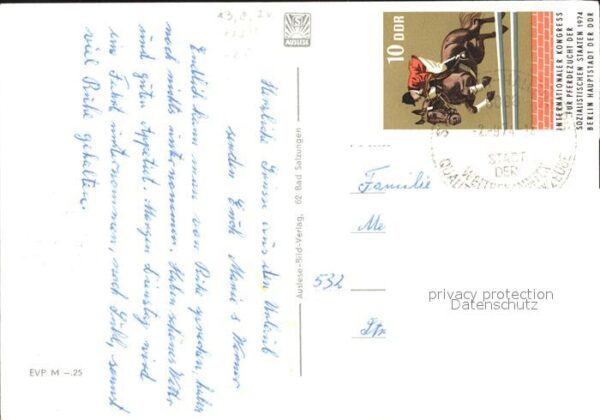 13.8.74
Herzliche Grüsse aus dem Urlaub
senden Euch Maria u. Werner
Endlich kann man von Ruhe sprechen, haben
noch nichts unternommen. Haben schönes Wetter
und guten Appetit. Morgen Dienstag wird
ein Fahrt unternommen, nach Suhl, sonst
viel Ruhe gehalten.
EVP M –.25
AUSLESE
Auslese-Bild-Verlag, 62 Bad Salzungen
10 DDR
INTERNATIONALER KONGRESS
FÜR PFERDEZUCHT DER
SOZIALISTISCHEN STAATEN 1974
BERLIN HAUPTSTADT DER DDR
-2.-9.74
STADT
DER
Familie
Me
532
Str
privacy protection
Datenschutz